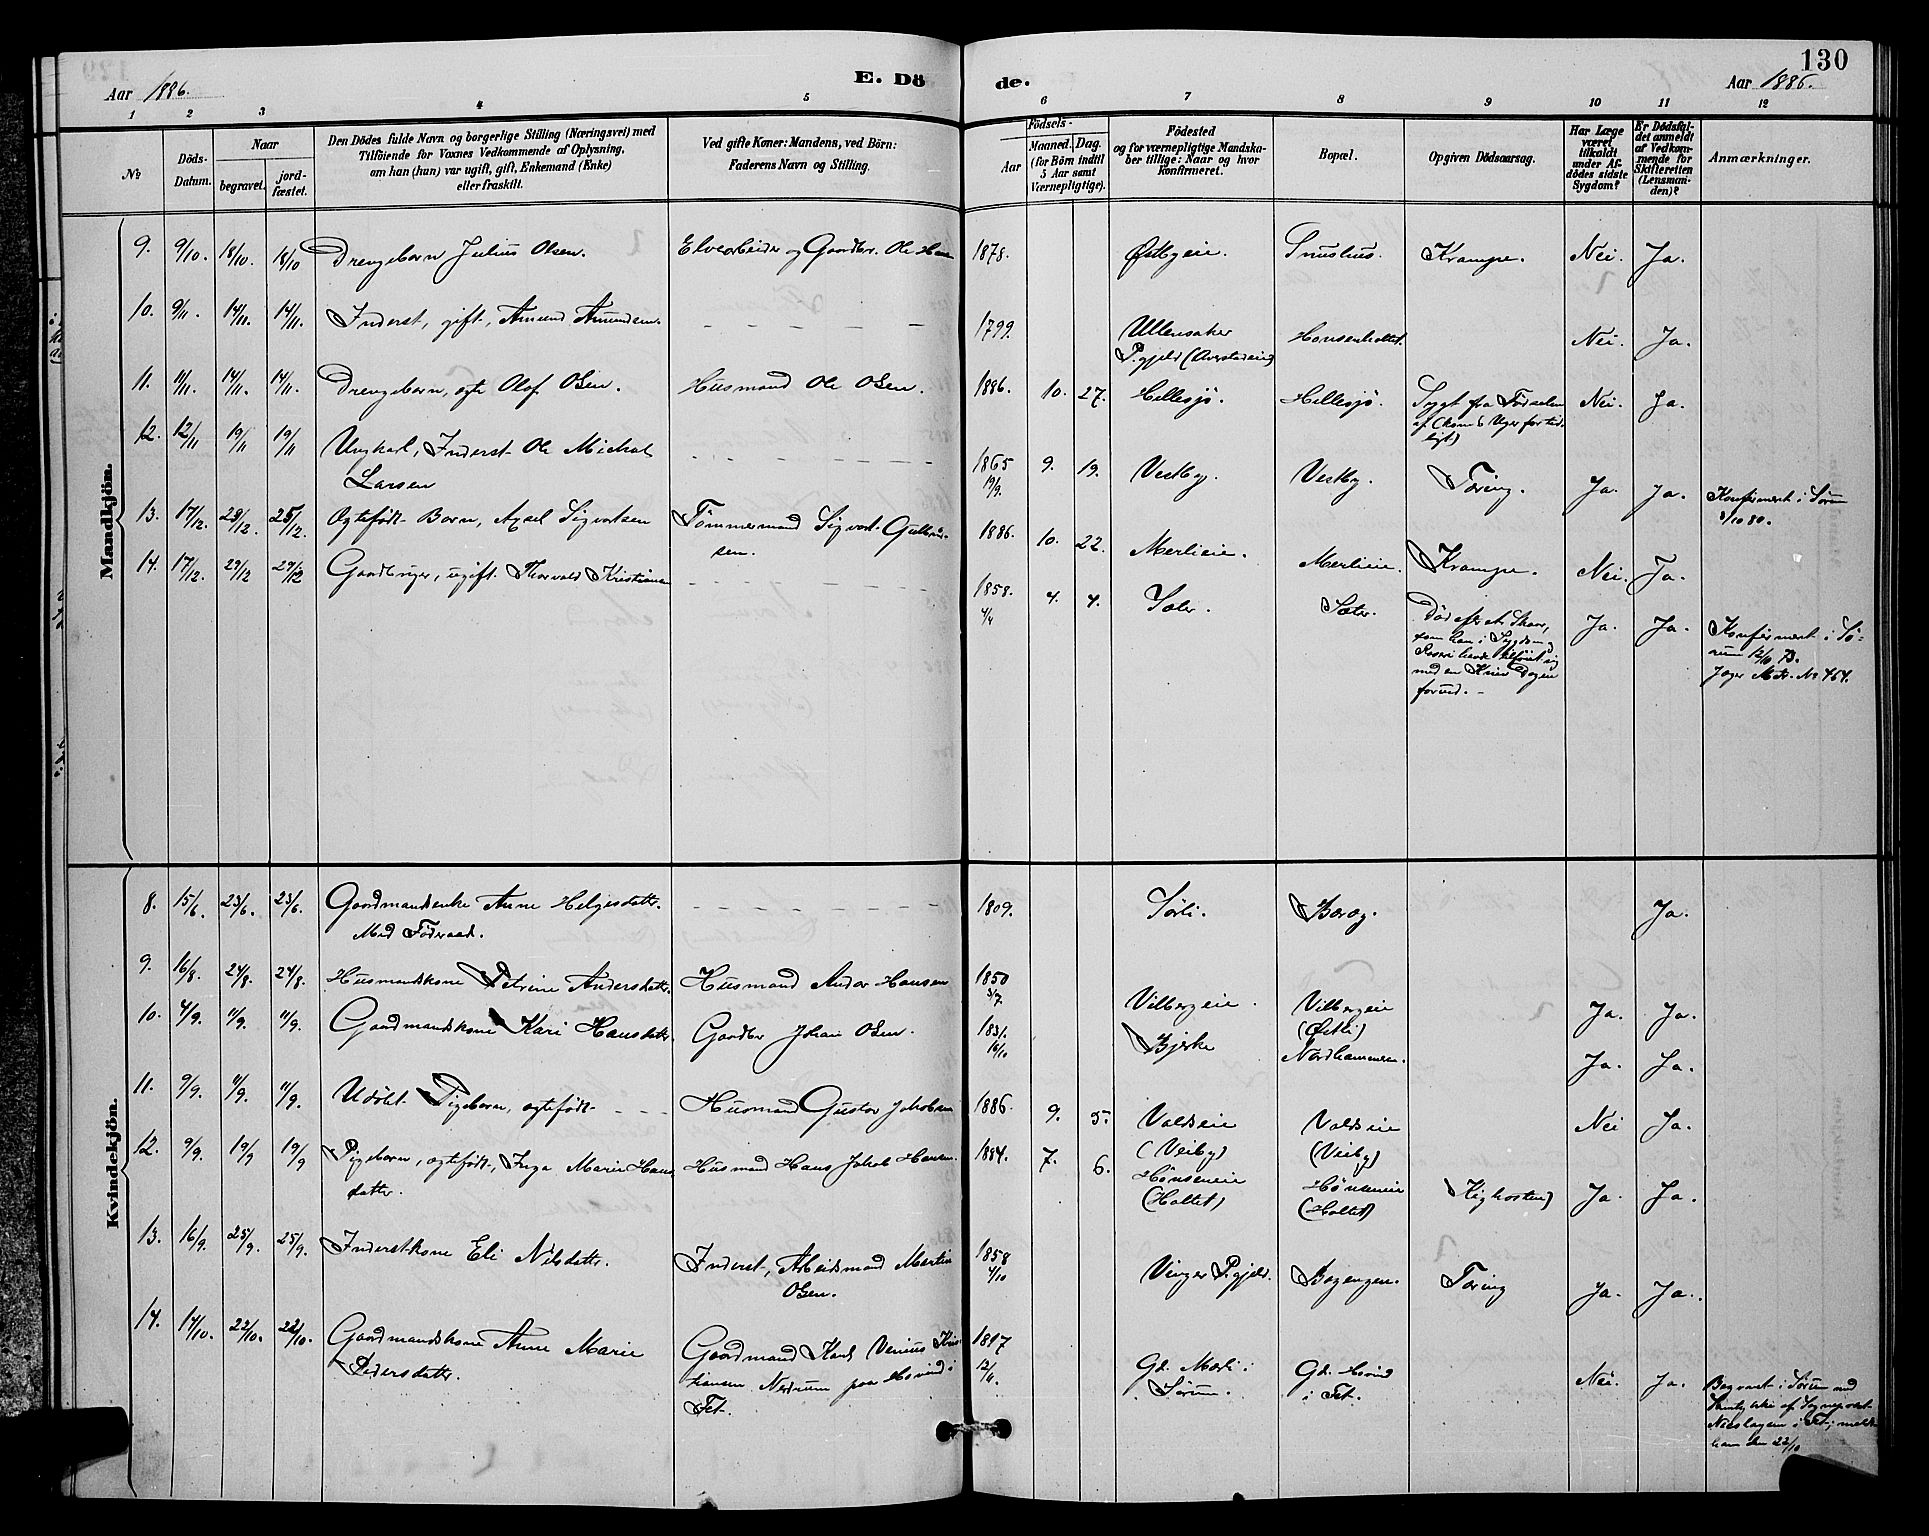 130
Aar 1886.
E. Dö
de.
Aar 1886.
1 2 3 4 5 6 7 8 9 10 11 12
№
Döds-
Datum.
Naar
begravet.
jord-
fæstet.
Den Dödes fulde Navn og borgerlige Stilling (Næringsvei) med
Tilföiende for Voxnes Vedkommende af Oplysning,
om han (hun) var ugift, gift, Enkemand (Enke)
eller fraskilt.
Ved gifte Koner: Mandens, ved Börn:
Faderens Navn og Stilling.
Födsels-
Aar
Maaned. Dag.
(for Börn indtil
5 Aar samt
Værnepligtige).
Födested
og for værnepligtige Mandska-
ber tillige: Naar og hvor
konfirmeret.
Bopæl.
Opgiven Dödsaarsag.
Har Læge
været
tilkaldt
under Af-
dödes sidste
Sygdom?
Er Dödsfal-
det anmeldt
af Vedkom-
mende for
Skifteretten
(Lensman-
den)?
Anmærkninger.
Mandkjön.
9. 9/10. 18/10. 18/10 Drengebarn Julius Olsen. Elvearbeider og Gaardbr. Ole 1878. Østbyeie. Snushus. Krampe. Nei. Ja.
10. 9/11. 14/11. 14/11. Inderst, gift, Amund Amundsen. 1799. Ullensaker
P.gjeld Nei. Ja.
11. 11/11. 14/11. 14/11. Drengebarn, ægte Olaf Olsen. Husmand Ole Olsen. 1886. 10. 27. Hellesjø. Hellesjø. Sygt fra Fødselen
af (kom 6 Uger for tid-
ligt) Nei. Ja.
12. 12/11 19/11 19/11 Ungkarl, Inderst Ole Michal
Larsen 1865
19/9. 9. 19. Vestby. Vestby. Tæring. Ja. Ja. Konfirmert i Sørum
3/10 80.
13. 17/12. 29/12. 25/12. Ægtefødt Barn, Axel Sigvartsen Tømmermand Sigvart Gulbrand-
sen. 1886. 10. 22. Merlieie. Merlieie. Krampe. Nei. Ja.
14. 17/12. 29/12 29/12 Gaardbruger, ugift. Thorvald Kristiansen 1858.
4/4 4. 4. Sæter. Sæter. Død efter et Skaar,
som han i Sygdom
havde tilføiet sig
med en Kniv Dagen
forud. Ja. Ja. Konfirmert i Sø-
rum 12/10 73.
Jæger M. Nr. No 464.
Kvindekjön.
8. 15/6. 23/6. 23/6. Gaardmandsenke Anne Helgesdatter.
Med Föderaad. 1809. Sørli. Ja.
9. 16/8. 24/8. 24/8. Husmandskone Petrine Andersdatter. Husmand Andor Hansen 1850
3/7. Vilbergeie. Vilbergeie
(Østli) Ja. Ja.
10. 4/9. 11/9. 11/9. Gaardmandskone Kari Hansdatter. Gaardbr Johan Olsen. 1831.
16/10 Bjerke Nordhammeren. Ja. Ja.
11. 9/9. 11/9. 11/9. Udøbt Pigebarn, ægtefødt Husmand Gustav Jakobsen 1886. 9. 5. Valdseie
(Veiby) Valdseie
(Veiby) Nei Ja.
12. 9/9. 19/9 19/9 Pigebarn, ægtefødt, Inga Marie Hans-
datter. Husmand Hans Jakob Hansen. 1884. 7. 6. Hønseneie
(Holtet) Hønseneie
(Holtet) Kighosten) Ja. Ja.
13. 16/9. 25/9. 25/9. Inderstkone Eli Nilsdatter. Inderst, Arbeidsmand Martin
Olsen. 1858
4/10 Vinger P.gjeld. Bogengen. Tæring Ja. Ja.
14. 14/10. 22/10. 22/10. Gaardmandskone Anne Marie
Pedersdatter. Gaardmand Karl Venius Kris-
tiansen Nedrum paa Hovind i
Fet. 1817
12/11. Gd. Mæli i
Sørum. Gd. Hovind
i Fet. Nei. Ja. Begravet i Sørum med
Samtykke af Sogneprest
i Fet; meldt
ham den 22/10